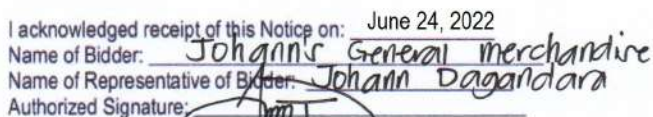 I acknowledged receipt of this Notice on: June 24, 2022
Name of Bidder: Johann's General merchandise
Name of Representative of Bidder: Johann Dagandara
Authorized Signature: